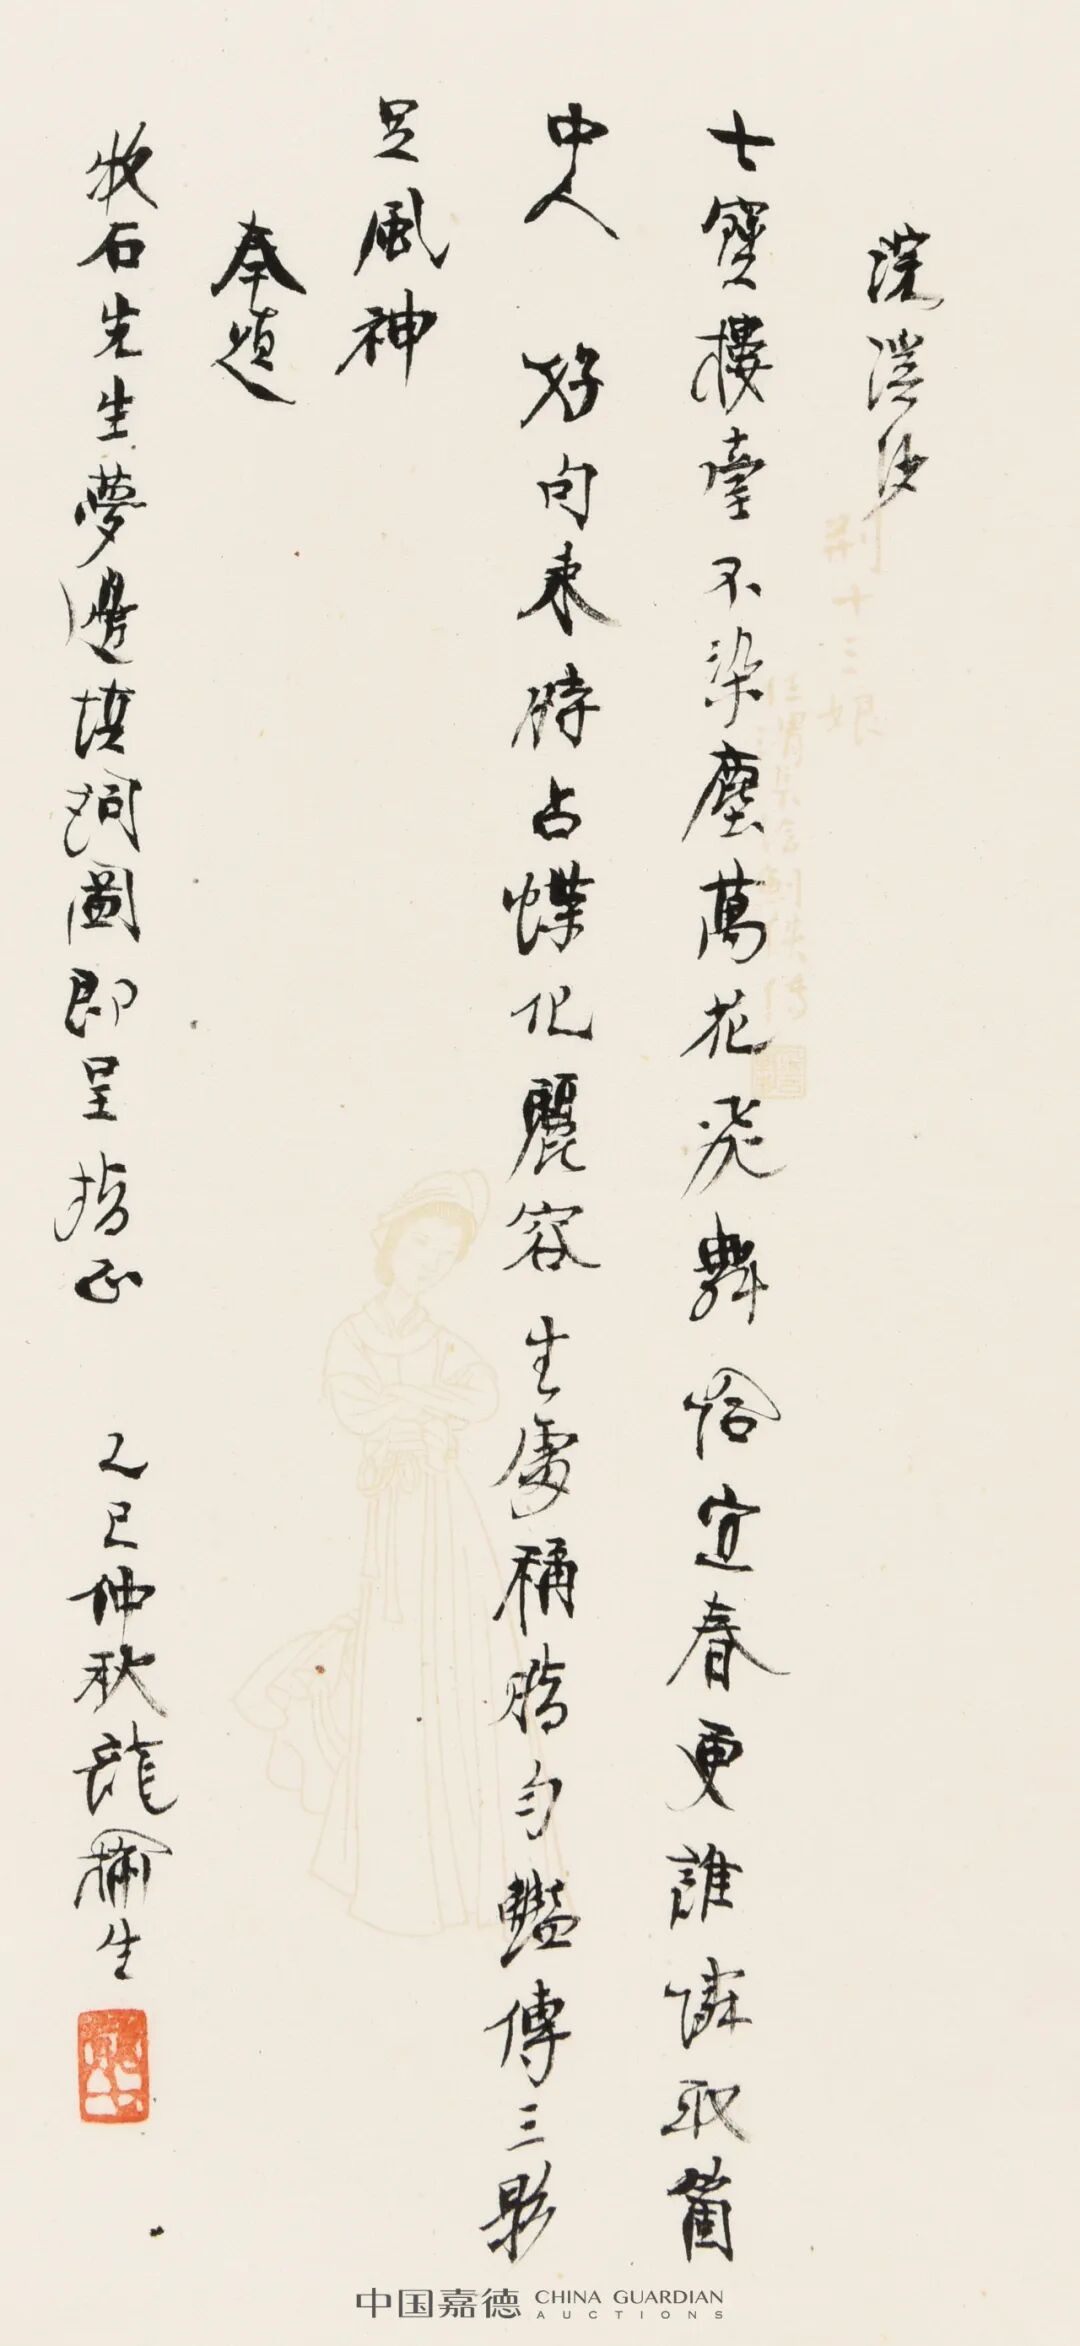 浣溪沙
七寶樓臺不染塵萬花飛舞恰宜春更誰憐取箇
中人 好句來時占蝶化麗容生處稱脂勻豔傳三影
足風神
奉題
牧石先生夢邊填詞圖即呈指正 乙巳仲秋龍榆生
荆十三娘
任渭長繪劍俠傳
中国嘉德 CHINA GUARDIAN
AUCTIONS